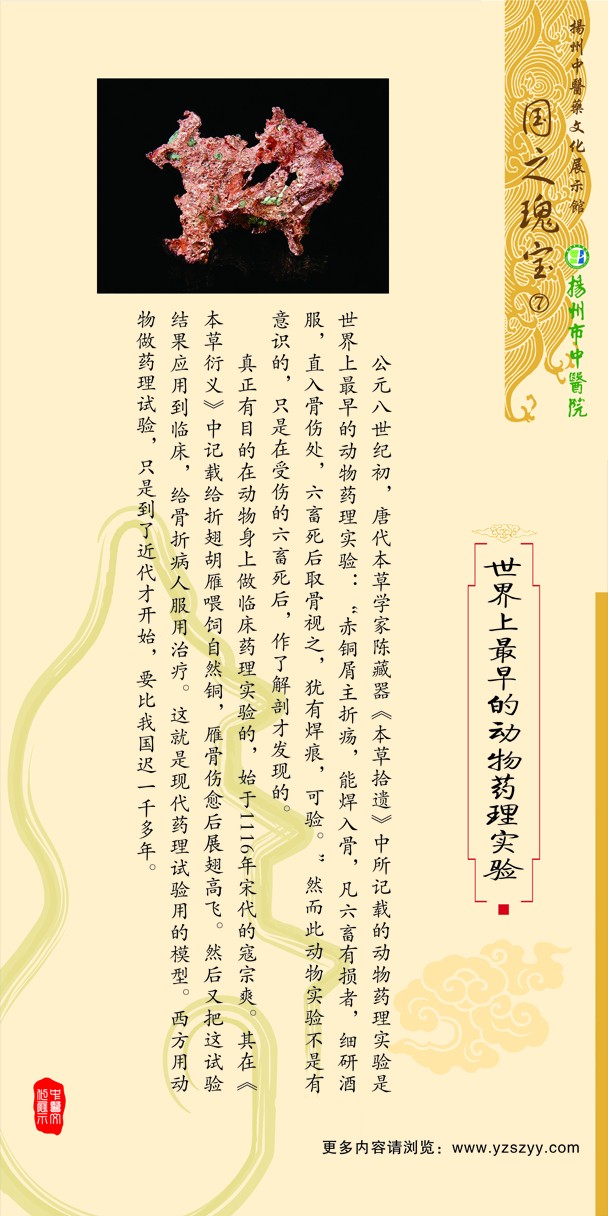 揚州中醫藥文化展示館
国之瑰宝⑦
揚州市中醫院
世界上最早的动物药理实验
公元八世纪初，唐代本草学家陈藏器《本草拾遗》中所记载的动物药理实验是
世界上最早的动物药理实验：“赤铜屑主折疡，能焊入骨，凡六畜有损者，细研酒
服，直入骨伤处，六畜死后取骨视之，犹有焊痕，可验。”然而此动物实验不是有
意识的，只是在受伤的六畜死后，作了解剖才发现的。
真正有目的在动物身上做临床药理实验的，始于1116年宋代的寇宗爽。其在《
本草衍义》中记载给折翅胡雁喂饲自然铜，雁骨伤愈后展翅高飞。然后又把这试验
结果应用到临床，给骨折病人服用治疗。这就是现代药理试验用的模型。西方用动
物做药理试验，只是到了近代才开始，要比我国迟一千多年。
更多内容请浏览：www.yzszyy.com